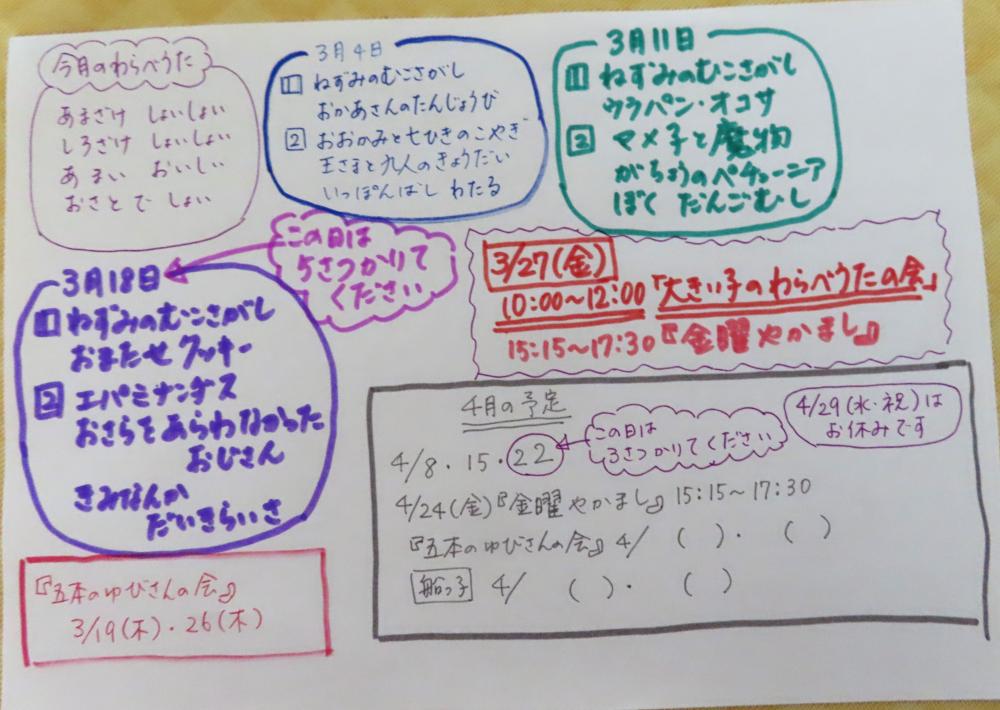 今月のわらべうた
あまざけ しょいしょい
しろざけ しょいしょい
あまい おいしい
おさとで しょい
3月4日
1 ねずみのむこさがし
おかあさんのたんじょうび
2 おおかみと七ひきのこやぎ
王さまと九人のきょうだい
いっぽんばし わたる
3月11日
1 ねずみのむこさがし
ウラパン・オコサ
2 マメ子と魔物
がちょうのペチューニア
ぼく だんごむし
この日は
5さつかりて
ください
3月18日
1 ねずみのむこさがし
おまたせクッキー
2 エパミナンダス
おさらをあらわなかった
おじさん
きみなんか
だいきらいさ
3/27(金)
10:00~12:00「大きい子のわらべうたの会」
15:15~17:30『金曜やかまし』
『五本のゆびさんの会』
3/19(木)・26(木)
4月の予定
4/8・15・22
この日は
3さつかりてください
4/29(水・祝)は
お休みです
4/24(金)『金曜やかまし』15:15~17:30
『五本のゆびさんの会』4/ ( )・ ( )
船っ子 4/ ( )・ ( )